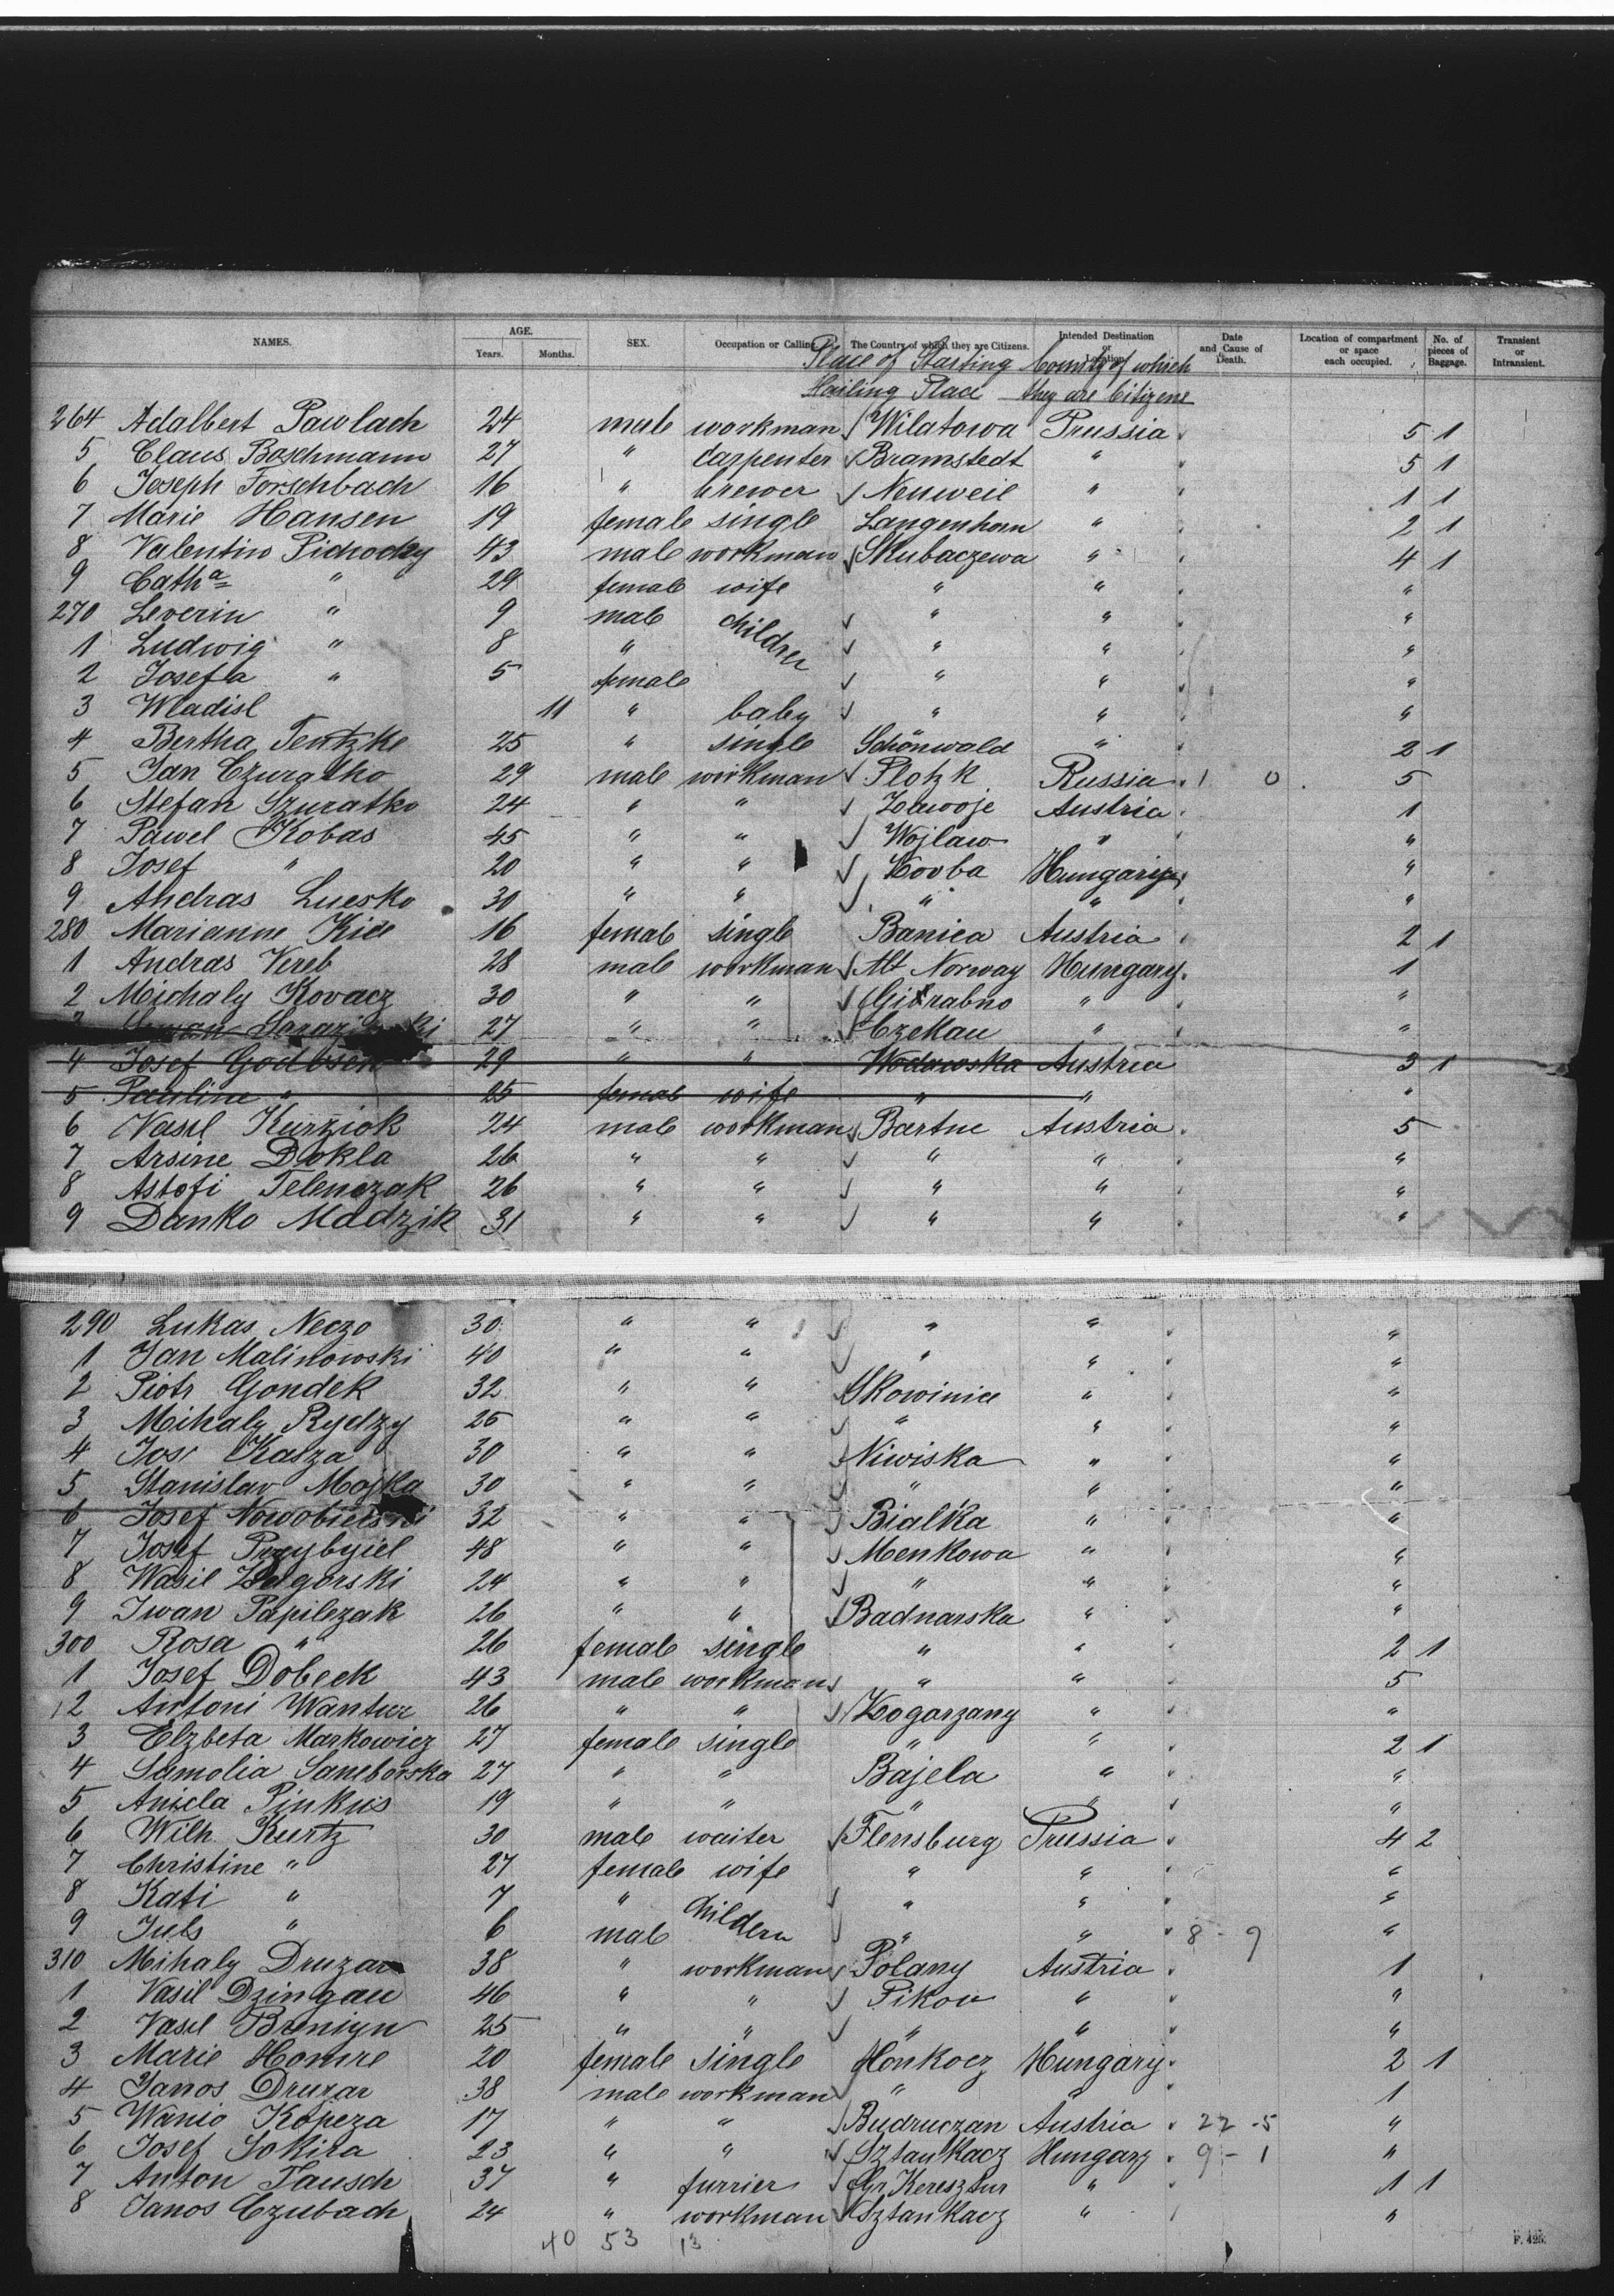 NAMES. AGE. Years. Months. SEX. Occupation or Calling. The Country of which they are Citizens. Intended Destination or Location. Date and Cause of Death. Location of compartment or space each occupied. No. of pieces of Baggage. Transient or Intransient.
Place of Starting County of which
Hailing Place they are Citizens
264 Adalbert Pawlach 24 male workman Wilatowa Prussia 5 1
5 Claus Boschmann 27 " Carpenter Bramstedt " 5 1
6 Joseph Forschbach 16 " brewer Neuweil " 1 1
7 Marie Hansen 19 female single Langenhorn " 2 1
8 Valentin Pichocky 43 male workman Skubaczewa " 4 1
9 Catha " 29 female wife " " "
270 Leverin " 9 male children " " "
1 Ludwig " 8 " " " "
2 Josefa " 5 female " " "
3 Wladisl 11 " baby " " "
4 Bertha Tentzke 25 " single Schönwald " 2 1
5 Jan Czuratko 29 male workman Plotzk Russia 1 0 5
6 Stefan Szuratko 24 " " Zawoje Austria 1
7 Pawel Kobas 45 " " Wojlaw " "
8 Josef " 20 " " Kovba Hungary "
9 Andras Luesko 30 " " " " "
280 Marianne Kice 16 female single Banica Austria 2 1
1 Andras Vereb 28 male workman Alt Norway Hungary 1
2 Michaly Kovacz 30 " " Giorabno " "
27 " " Czekau " "
4 Josef Godosen 29 " " Wodowska Austria 3 1
5 Pauline " 25 female wife " " "
6 Vasil Kurziok 24 male workman Bartne Austria 5
7 Arsine Dokla 26 " " " " "
8 Astofi Telenczak 26 " " " " "
9 Danko Madzik 31 " " " " "
290 Lukas Neczo 30 " " " " "
1 Jan Malinowski 40 " " " " "
2 Piotr Gondek 32 " " Skowinia " "
3 Mihaly Rydzy 25 " " " " "
4 Jos Kasza 30 " " Niwiska " "
5 Stanislav Majka 30 " " " " "
6 Josef Nowobielski 32 " " Bialka " "
7 Josef Przybyiel 48 " " Menkowa " "
8 Wasil Zagorski 24 " " " " "
9 Iwan Papilczak 26 " " Badnarska " "
300 Rosa " 26 female single " " 2 1
1 Josef Dobeck 43 male workman " " 5
2 Antoni Wantuz 26 " " Kogarzany " "
3 Elzbeta Markowicz 27 female single " " 2 1
4 Samolia Samborska 27 " " Bajela " "
5 Aniela Pinkus 19 " " " " "
6 Wilh. Kurtz 30 male waiter Flensburg Prussia 4 2
7 Christine " 27 female wife " " "
8 Kati " 7 " childern " " "
9 Juls " 6 male " " 8 - 9 "
310 Mihaly Druzar 38 " workman Polany Austria 1
1 Vasil Dzingau 46 " " Pikou " "
2 Vasil Breniyn 25 " " " " "
3 Marie Homre 20 female single Honkocz Hungary 2 1
4 Janos Druzar 38 male workman " " 1
5 Wanio Kopeza 17 " " Budruczan Austria 22 - 5 "
6 Josef Sokira 23 " " Sztankacz Hungary 9 - 1 "
7 Anton Tausch 37 " furrier Gr. Keresztur " 1 1
8 Janos Czubach 24 " workman Sztankacz " "
40 53 13
F. 425.